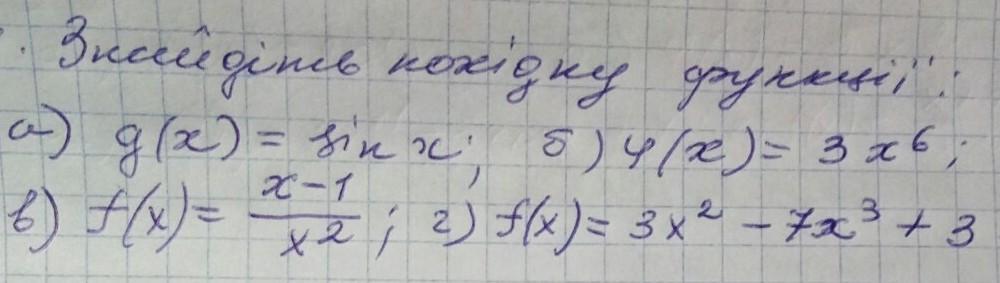 . Знайдіть похідну функції:
а) g(x) = sin x; б) φ(x) = 3x⁶;
в) f(x) = (x-1)/x²; г) f(x) = 3x² - 7x³ + 3